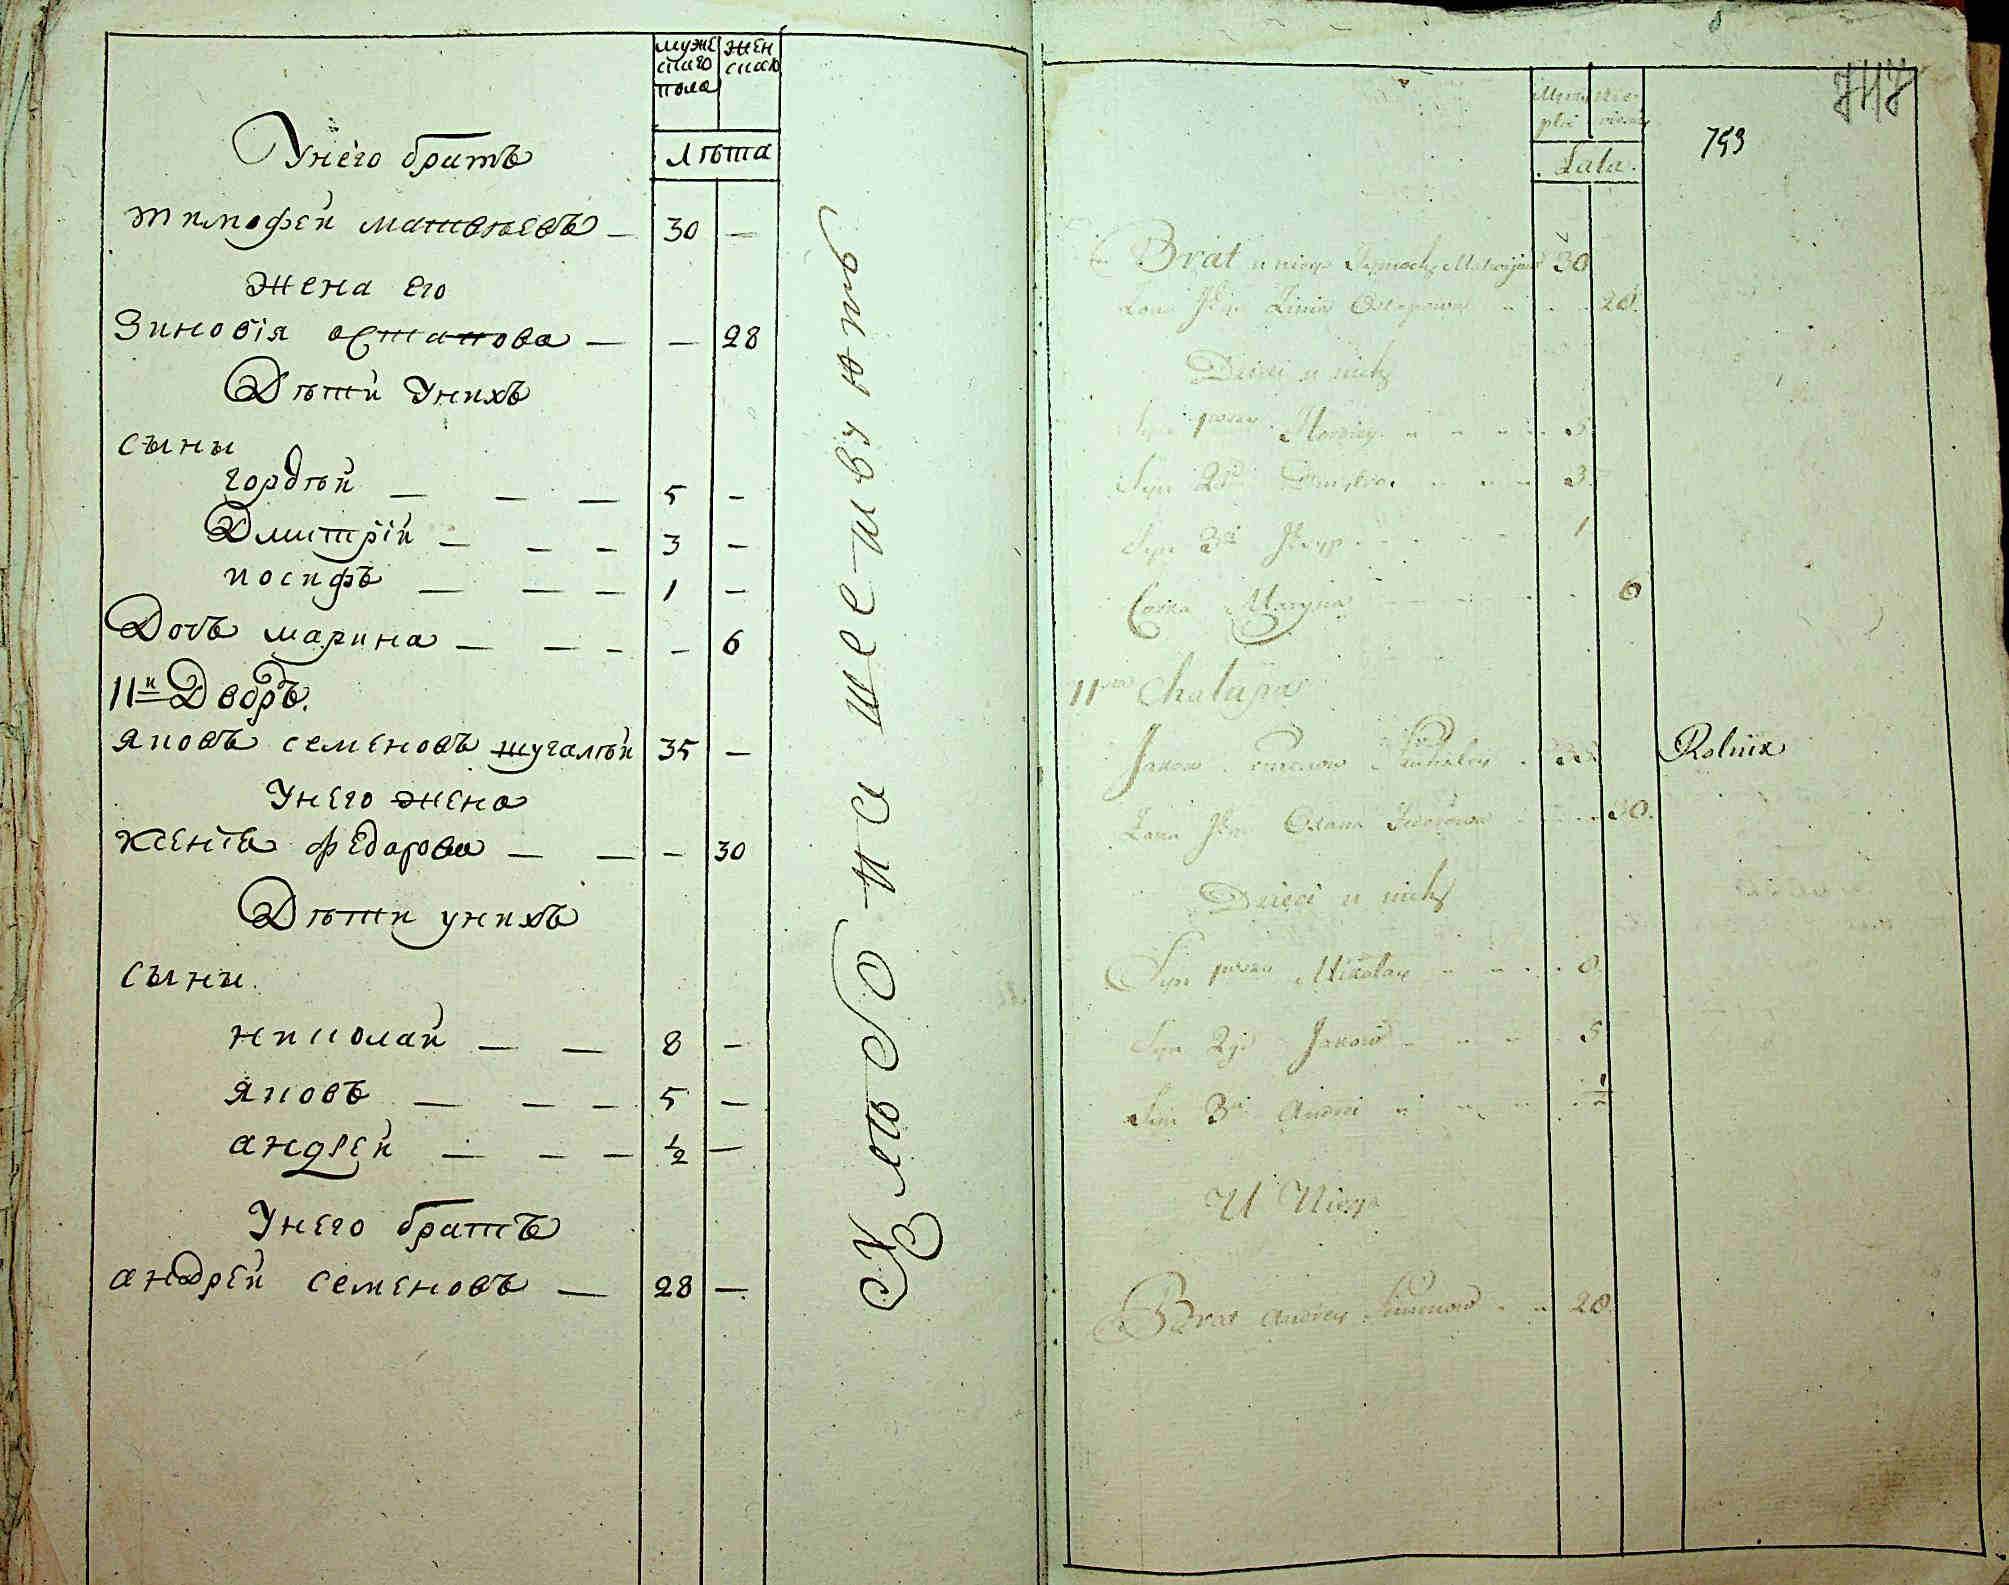 мужескаго пола женскаго
Лѣта
У него братъ
тимофей матвѣевъ — 30 —
жена его
Зиновія астапова — — 28
Дѣти У нихъ
сыны
гордѣй — — — 5 —
Дмитрій — — — 3 —
иосифъ — — — 1 —
Дочь марина — — — — 6
11й Дворъ.
яковъ семеновъ шугалѣй 35 —
У него жена
ксенія федорова — — — 30
Дѣти у нихъ
сыны.
николай — — 8 —
яковъ — — — 5 —
андрей — — — ½ —
У него братъ
андрей семеновъ — 28 —
Хлѣбопашествуютъ
753
Lata.
Brat u niego Matwijow 30
Żona Jego Zinia Ostapowa 28.
Dzieci u nich
Syn pierwszy Hordiey 5
Syn 2gi Dmytro 3.
Syn 3ci Józyp 1
Córka Maryna 6
11sta Chałupa
Jakow Semenow 35 Rolnik
Żona Jego Oxana 30.
Dzieci u nich
Syn pierwszy Mikołay 8.
Syn 2gi Jakow 5
Syn 3ci Andrei ½
U Niego
Brat Andrey Semenow 28